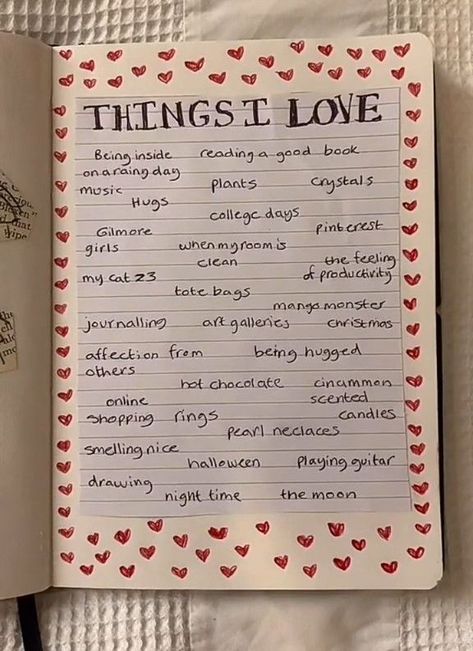 THINGS I LOVE
Being inside reading a good book
on a rainy day
music plants crystals
Hugs
college days
Gilmore pinterest
girls when my room is
clean the feeling
my cat <3 of productivity
tote bags
mango monster
journalling art galleries christmas
affection from being hugged
others
hot chocolate cinammon
online scented
shopping rings candles
pearl neclaces
smelling nice
halloween playing guitar
drawing
night time the moon